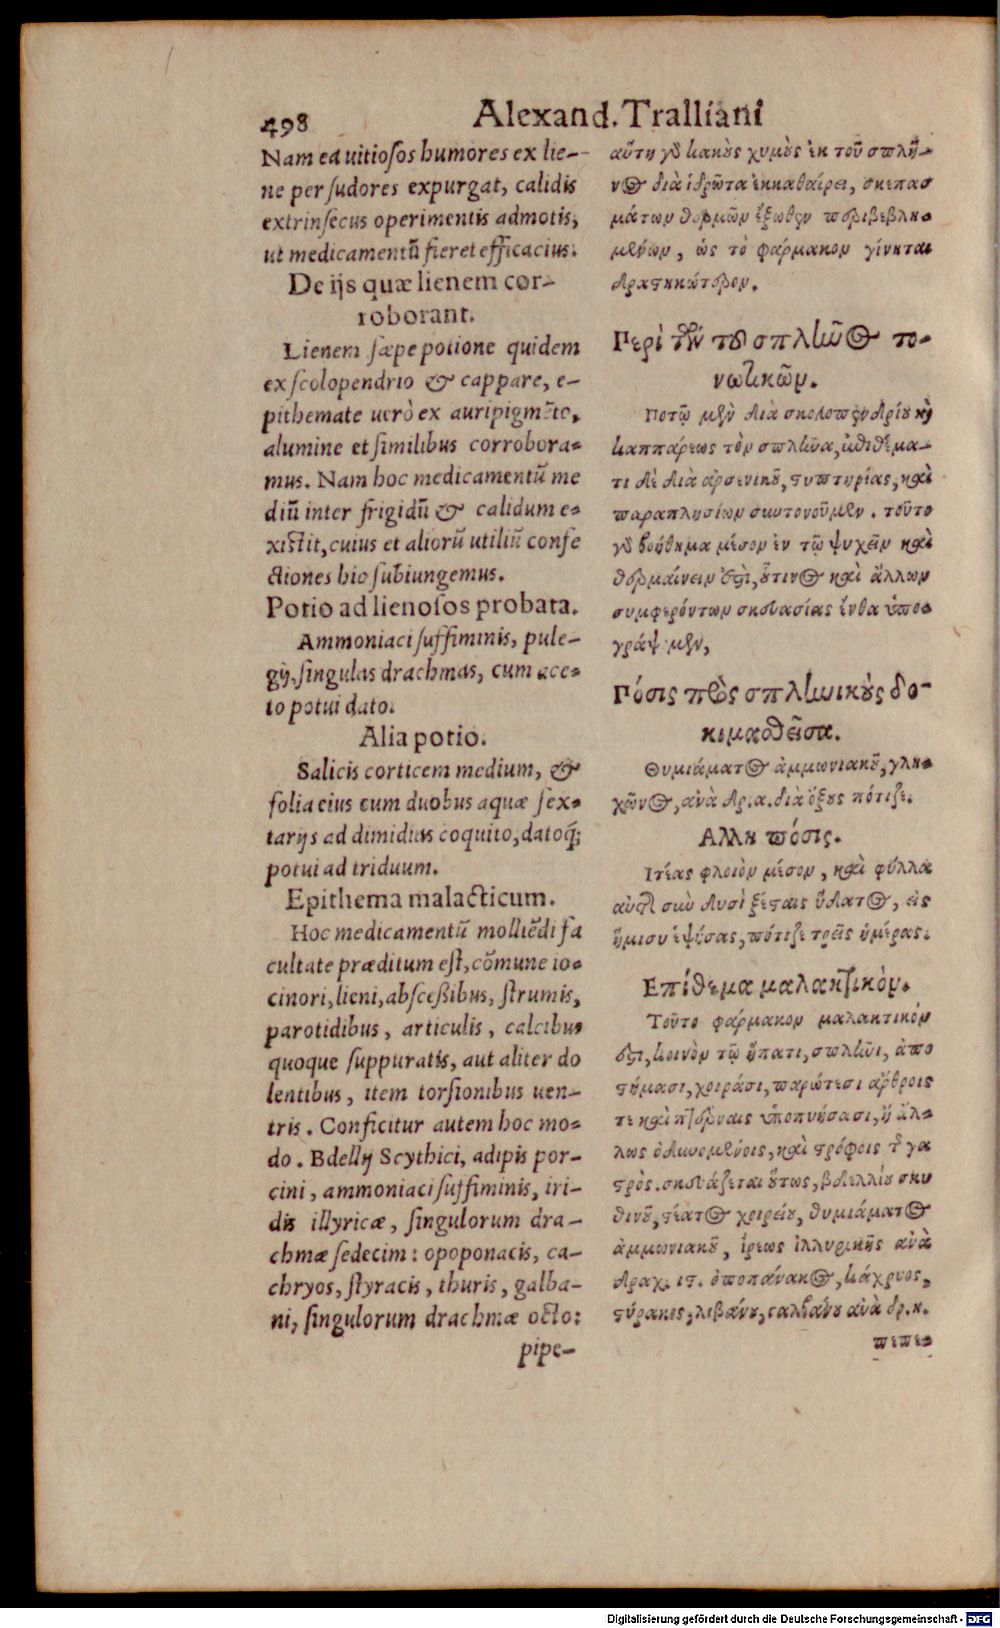 498
Alexand. Tralliani
Nam ea uitiosos humores ex lie-
ne per sudores expurgat, calidis
extrinsecus operimentis admotis,
ut medicamentũ fieret efficacius.
De ijs quæ lienem cor-
roborant.
Lienem sæpe potione quidem
ex scolopendrio & cappare, e-
pithemate uerò ex auripigmẽto,
alumine et similibus corrobora-
mus. Nam hoc medicamentũ me
diũ inter frigidũ & calidum e-
xistit, cuius et aliorũ utiliũ confe
ctiones hic subiungemus.
Potio ad lienosos probata.
Ammoniaci suffiminis, pule-
gij, singulas drachmas, cum ace-
to potui dato.
Alia potio.
Salicis corticem medium, &
folia eius cum duobus aquæ sex-
tarijs ad dimidius coquito, datoq́;
potui ad triduum.
Epithema malacticum.
Hoc medicamentũ molliẽdi fa
cultate præditum est, cõmune io-
cinori, lieni, abscessibus, strumis,
parotidibus, articulis, calcibus
quoque suppuratis, aut aliter do
lentibus, item torsionibus uen-
tris. Conficitur autem hoc mo-
do. Bdellij Scythici, adipis por-
cini, ammoniaci suffiminis, iri-
dis illyricæ, singulorum dra-
chmæ sedecim: opoponacis, ca-
chryos, styracis, thuris, galba-
ni, singulorum drachmæ octo:
pipe-
αὕτη γὸ κακοὺς χυμοὺς ἐκ τοῦ σπλη-
νὸς διὰ ἱδρῶτα ἐκκαθαίρει, σκεπασ
μάτων θερμῶν ἔξωθεν περιβεβλη-
μένων, ὡς τὸ φάρμακον γίνηται
δραστικώτερον.
Περὶ τῶν τοῦ σπληνὸς το-
νωτικῶν.
ποτῷ μὲν διὰ σκολοπενδρίου καὶ
καππάρεως τὸν σπλῆνα, ἐπιθέμα-
τι δὲ διὰ ἀρσενικοῦ, στυπτηρίας, καὶ
παραπλησίων ἐκτονοῦμεν. τοῦτο
γὸ βοήθημα μέσον ἐν τῷ ψυχεῖν καὶ
θερμαίνειν ἐστὶ, οὕτινος καὶ ἄλλων
συμφερόντων σκευασίας ἔνθα ὑπο-
γράψομεν,
Πόσις πρὸς σπληνικοὺς δο-
κιμασθεῖσα.
Θυμιάματος ἀμμωνιακοῦ, γλη-
χῶνος, ἀνὰ δρ. α. διὰ ὄξους πότιζε.
Αλλη πόσις.
Ιτέας φλοιὸν μέσον, καὶ φύλλα
αὐτῆς σὺν δυσὶ ξέσταις ὕδατος, εἰς
ἥμισυ ἑψήσας, πότιζε τρεῖς ἡμέρας.
Επίθεμα μαλακτικὸν.
Τοῦτο φάρμακον μαλακτικόν
ἐστι, κοινὸν τῷ ἥπατι, σπληνὶ, ἀπο
στήμασι, χοιράσι, παρώτεσι ἄρθροις
τε καὶ πτέρναις ὑποπνήσασι, ἢ ἄλ-
λως ὀδυνομένοις, καὶ στρόφοις τ͂ γα
στρὸς. σκευάζεται οὕτως, βδελλίου σκυ
θινοῦ, στέατος χοιρείου, θυμιάματος
ἀμμωνιακοῦ, ἴρεως ἰλλυρικῆς ἀνὰ
δραχ. ις. ὀποπάνακος, κάχρυος,
στύρακος, λιβάνου, χαλβάνου ἀνὰ δρ. η.
πεπε-
Digitalisierung gefördert durch die Deutsche Forschungsgemeinschaft - DFG